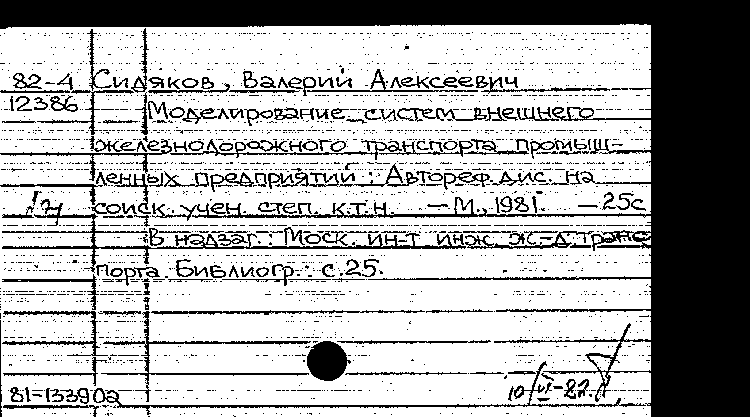 82-4 Сидяков, Валерий Алексеевич
12386 Моделирование систем внешнего
железнодорожного транспорта промыш-
ленных предприятий : Автореф. дис. на
соиск. учен. степ. к.т.н. — М., 1981. — 25с
В надзаг.: Моск. ин-т инж. ж.-д. транс
порта. Библиогр.: с.25.
10/VI-82.
81-13390а